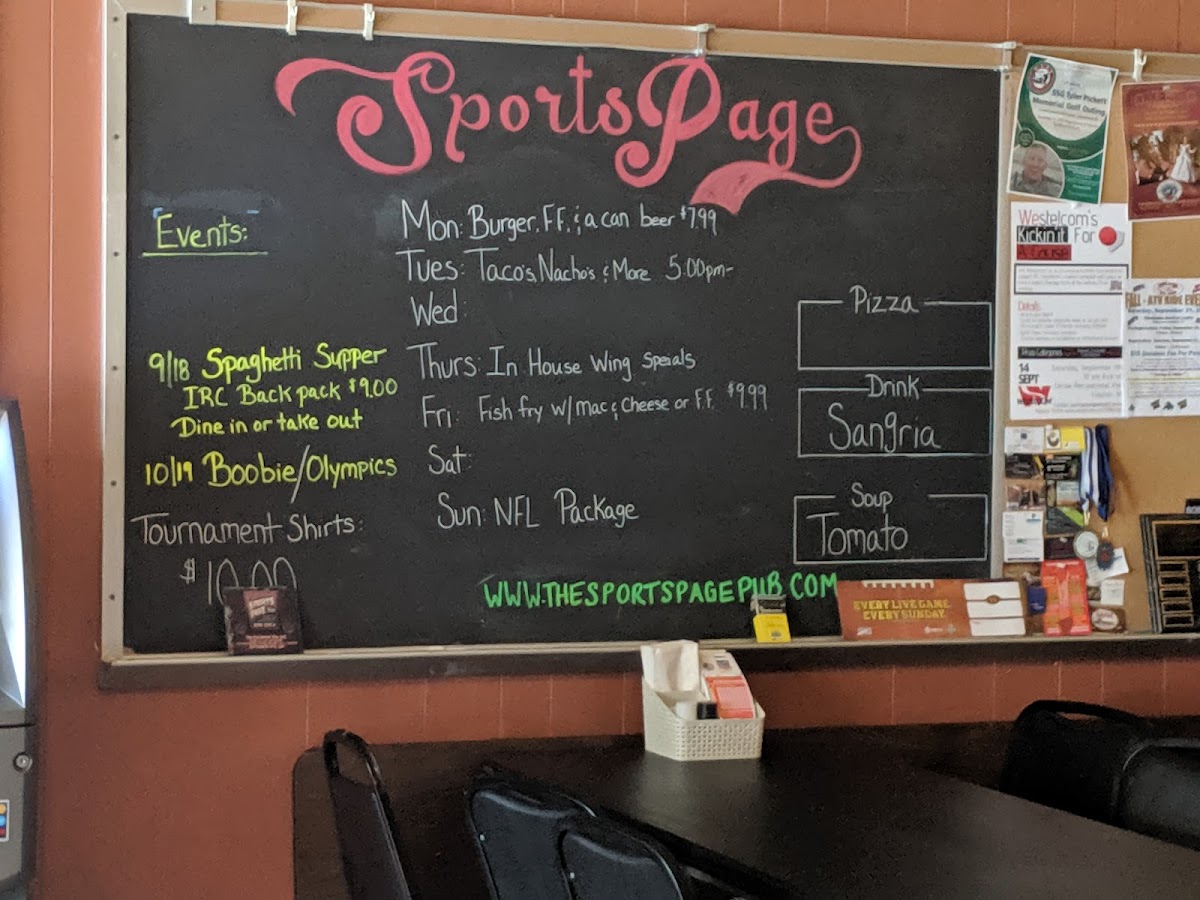 SportsPage
Events:
9/18 Spaghetti Supper
IRC Back pack $9.00
Dine in or take out
10/19 Boobie/Olympics
Tournament Shirts:
$10.00
Mon: Burger, F.F. & a can beer $7.99
Tues: Taco's, Nacho's & More 5:00pm-
Wed:
Thurs: In House Wing Specials
Fri: Fish fry w/mac & Cheese or F.F. $9.99
Sat:
Sun: NFL Package
WWW.THESPORTSPAGEPUB.COM
Pizza
Drink
Sangria
Soup
Tomato
EVERY LIVE GAME
EVERY SUNDAY
SSG Tyler Pickett
Memorial Golf Outing
Westelcom's
Kickin it For
A Cause
Details:
14
SEPT
FALL - ATV RIDE